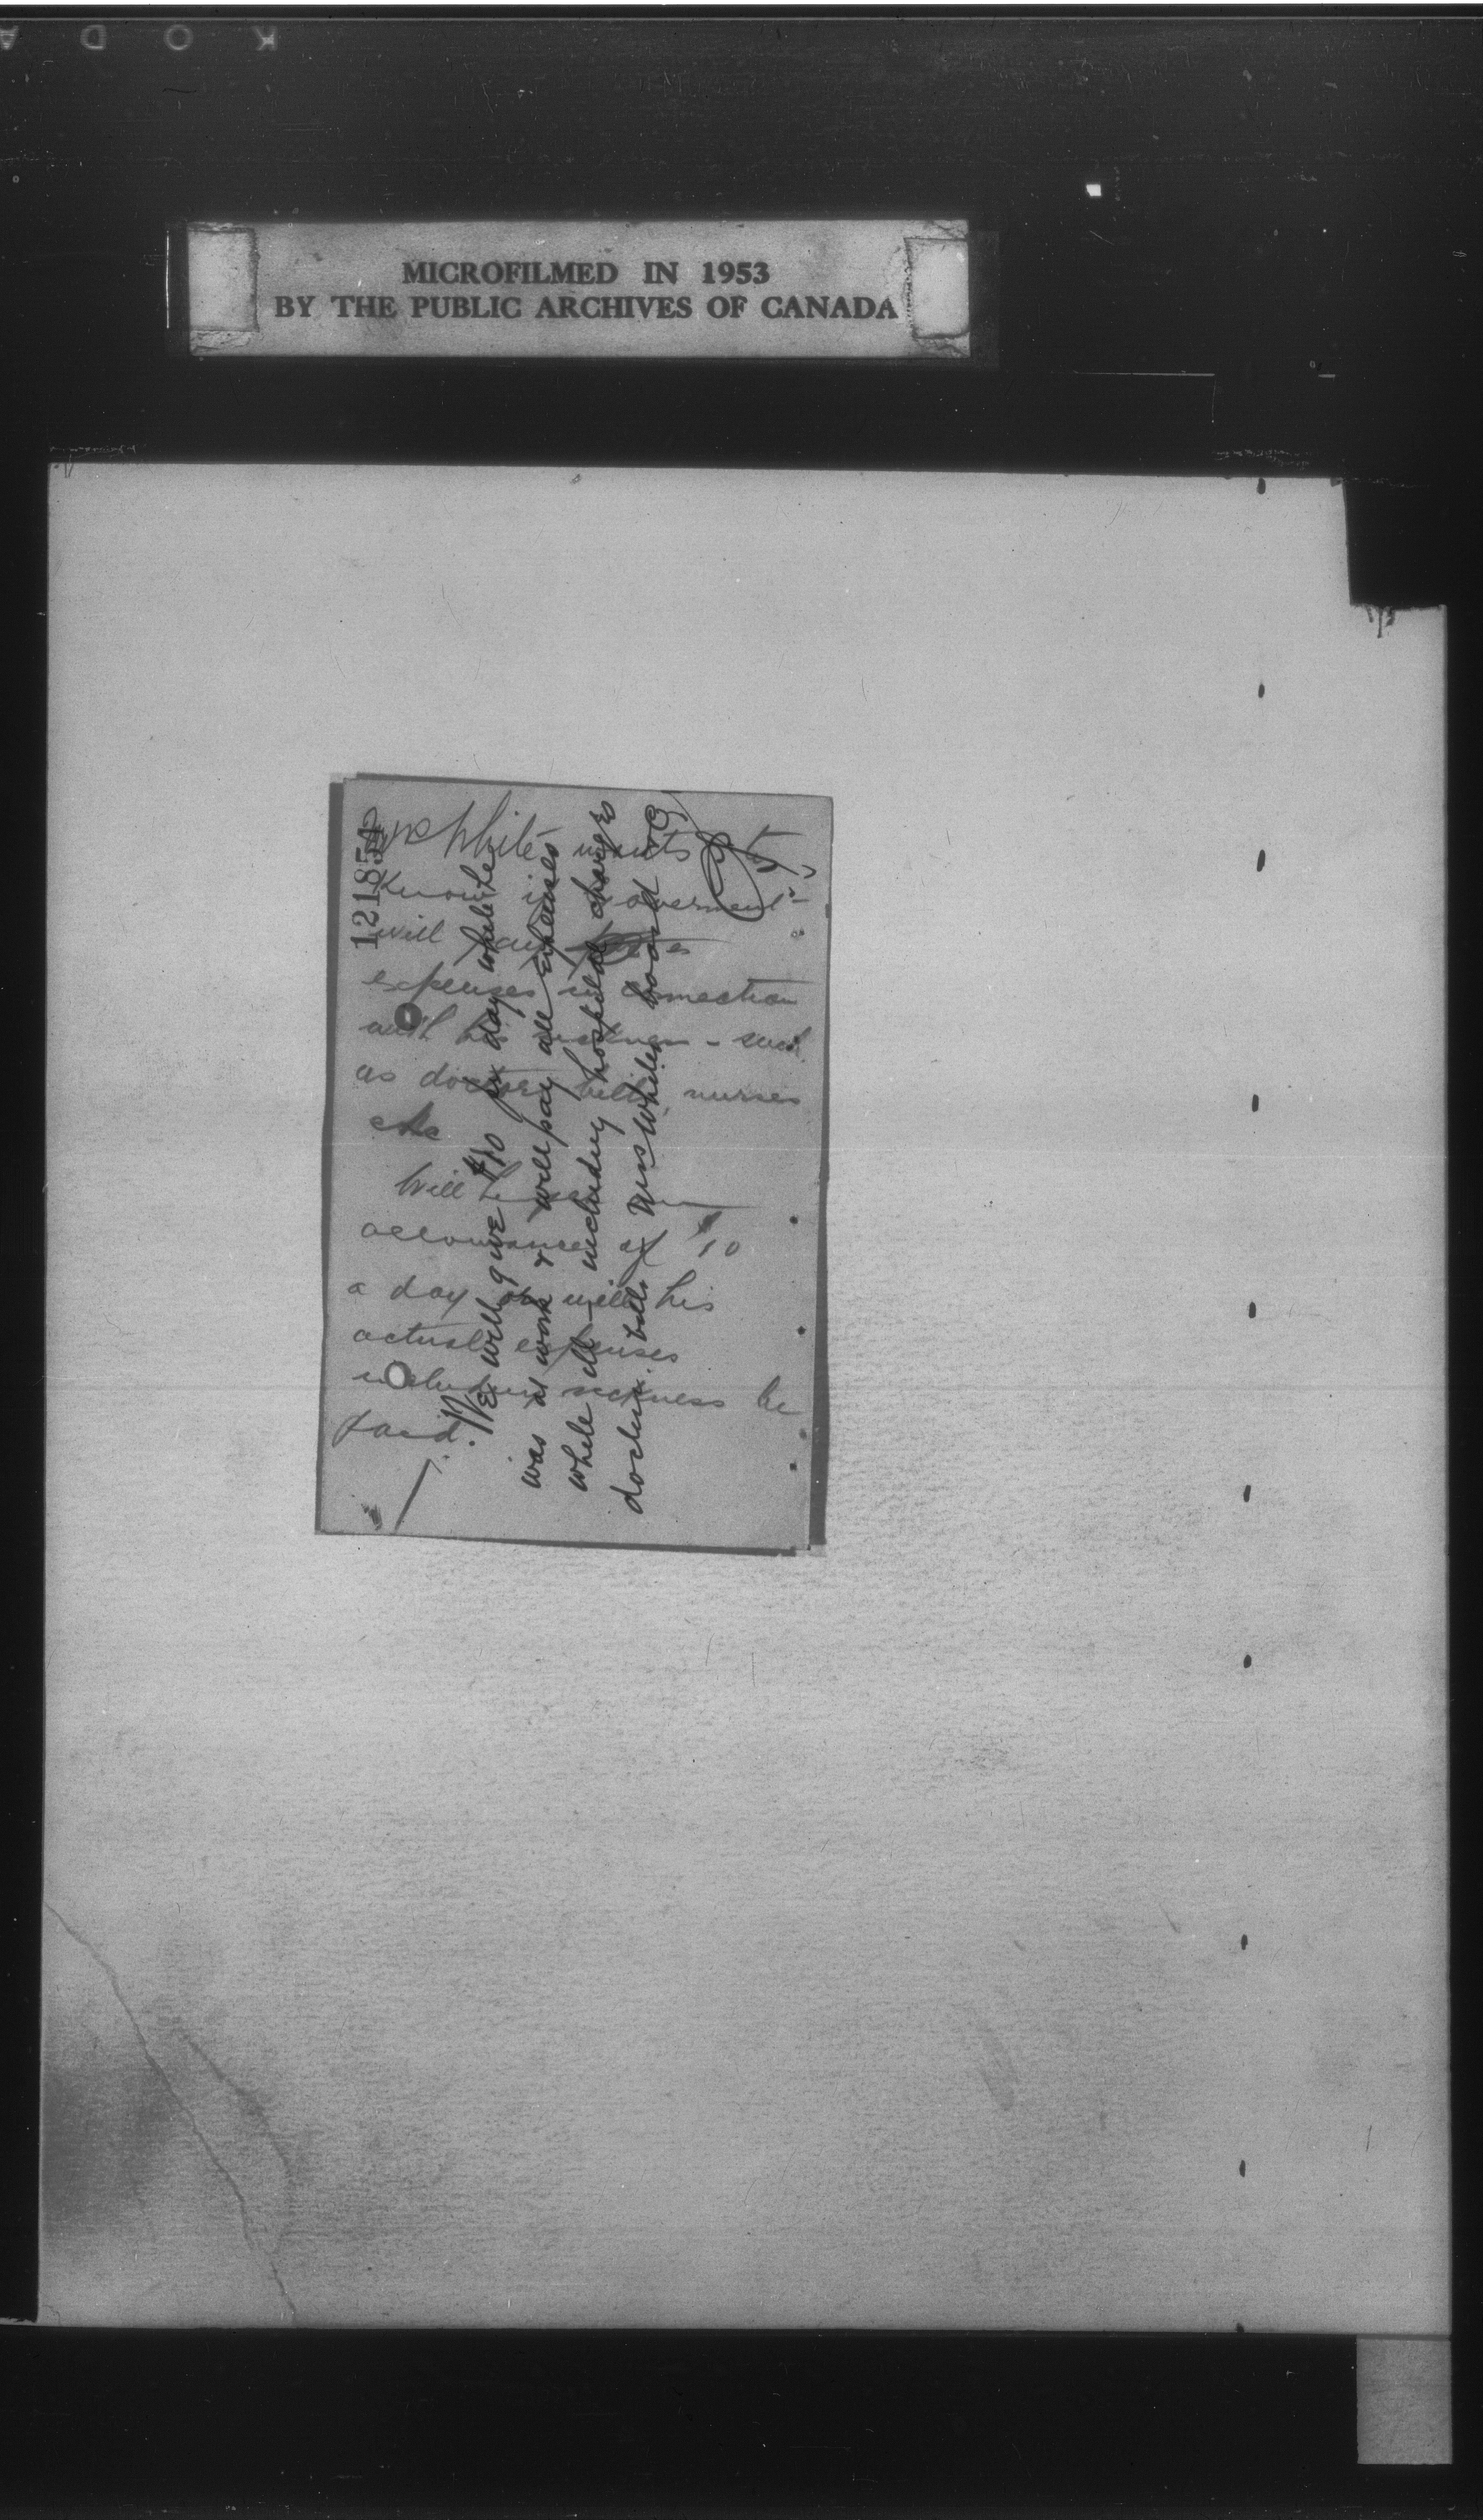 KODA
MICROFILMED IN 1953
BY THE PUBLIC ARCHIVES OF CANADA
121854
Mr White wants to
know if Government
will pay
expenses in connection
with his sickness - such
as doctors bills, nurses
etc
Will he
allowance of $10
a day or will his
actual expenses
including sickness be
paid.
We will give $10 per day while he
was at work & will pay all expenses
while ill - including hospital charges
doctors bills Mrs Whites board &c